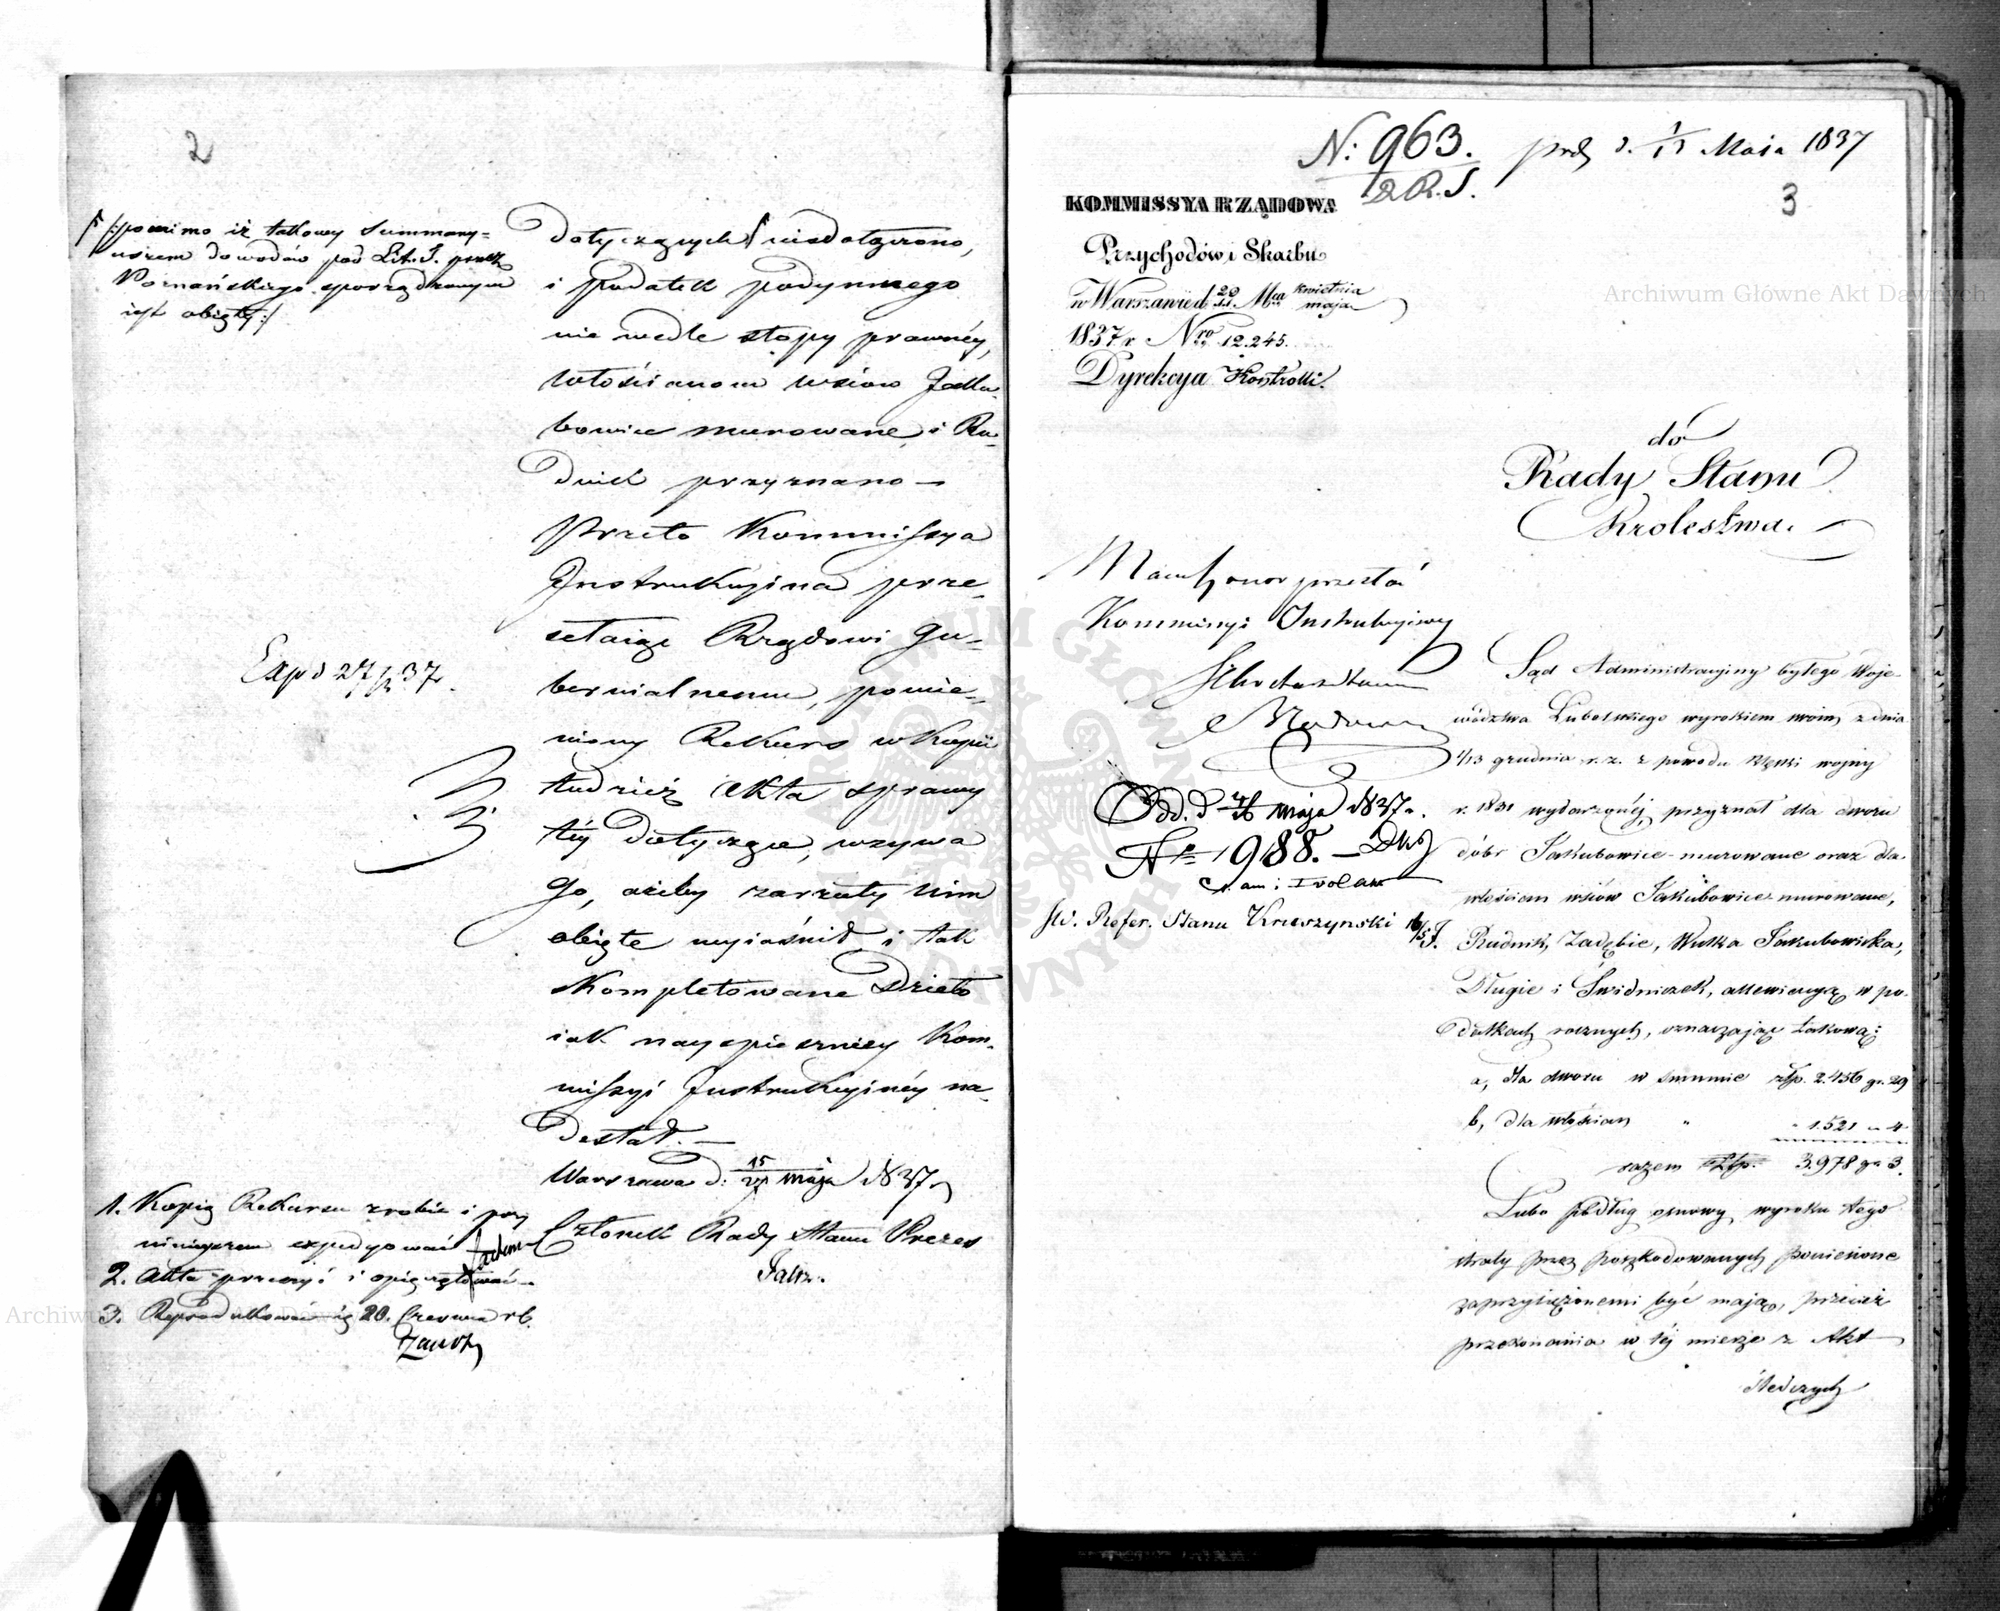 2
/:pomimo iż takowy summary-
uszem dowodów pod Lit. J. przez
Poznańskiego sporządzonym
iest obięty:/
dotyczących niedołączono,
i podatek podymnego
nie wedle stopy prawnéy,
włościanom wsiów Jaku-
bowice murowane i Ru-
dnik przyznano —
przeto Kommissya
Instrukcyina prze-
setaiąc Rządowi Gu-
bernialnemu, pomie-
niony Rekurs w kopii
tudzież Akta sprawy
téy dotyczące, wzywa
go, ażeby zarzuty nim
obięte wyiaśnił i tak
skompletowane Dzieło
iak nayspieszniey Kom-
missyi Instrukcyinéy na-
desłał. —
Warszawa d: 15/27 maja 1837 r
Członek Rady Stanu Prezes
Exp d 27/5 37
1. Kopią Rekursu zrobić i przy
ninieyszem expedyować
2. Akta przeszyć i opieczętować
3. Reprodukować ię 20. Czerwca rb.
N: 963.
2 R.S.
d. 1/13 Maja 1837
3
KOMMISSYA RZĄDOWA
Przychodów i Skarbu
w Warszawie d 29/11 Mca kwietnia
maja
1837 r Nro 12.245.
Dyrekcya Kontrolli.
do
Rady Stanu
Krolestwa.
Mam honor przesłać
Kommissyi Instrukcyiney
Odd. d 4/16 maja 1837 r.
No 1988.
JW. Refer. Stanu Kruszynski
Sąd Administracyiny byłego Woje-
wództwa Lubelskiego wyrokiem swoim z dnia
1/13 grudnia r. z. z powodu klęski wojny
r. 1831 wydarzonéj, przyznał dla dworu
dóbr Jakubowice-murowane oraz dla
włościan wsiów Jakubowice-murowane,
Rudnik, Zadębie, Wulka Jakubowicka,
Długie i Świdniczek, allewiacyą w po-
datkach rocznych, oznaczając takową:
a, dla dworu w summie złp. 2.456 gr. 29
b, dla włościan " " 1.521 " 4
razem złp. 3.978 gr 3.
Lubo podług osnowy wyroku tego
straty przez poszkodowanych poniesione
zaprzysiężonemi być mają, przecież
przekonania w téj mierze z Akt
śledczych
Archiwum Główne Akt Dawnych